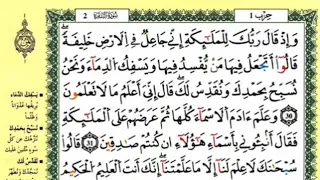 حزب 1
سورة البقرة
2
وَإِذْ قَالَ رَبُّكَ لِلْمَلَٰٓئِكَةِ إِنِّى جَاعِلٌ فِى الْأَرْضِ خَلِيفَةً
قَالُوٓا أَتَجْعَلُ فِيهَا مَنْ يُفْسِدُ فِيهَا وَيَسْفِكُ الدِّمَآءَ وَنَحْنُ
نُسَبِّحُ بِحَمْدِكَ وَنُقَدِّسُ لَكَ قَالَ إِنِّىٓ أَعْلَمُ مَا لَا تَعْلَمُونَ
30 وَعَلَّمَ ءَادَمَ الْأَسْمَآءَ كُلَّهَا ثُمَّ عَرَضَهُمْ عَلَى الْمَلَٰٓئِكَةِ
فَقَالَ أَنۢبِـُٔونِى بِأَسْمَآءِ هَٰٓؤُلَآءِ إِنْ كُنْتُمْ صَٰدِقِينَ 31 قَالُوا
سُبْحَٰنَكَ لَا عِلْمَ لَنَآ إِلَّا مَا عَلَّمْتَنَآ إِنَّكَ أَنْتَ الْعَلِيمُ الْحَكِيمُ
يَسْفِكُ الدِّمَآءَ
نُسَبِّحُ بِحَمْدِكَ
نُقَدِّسُ لَكَ